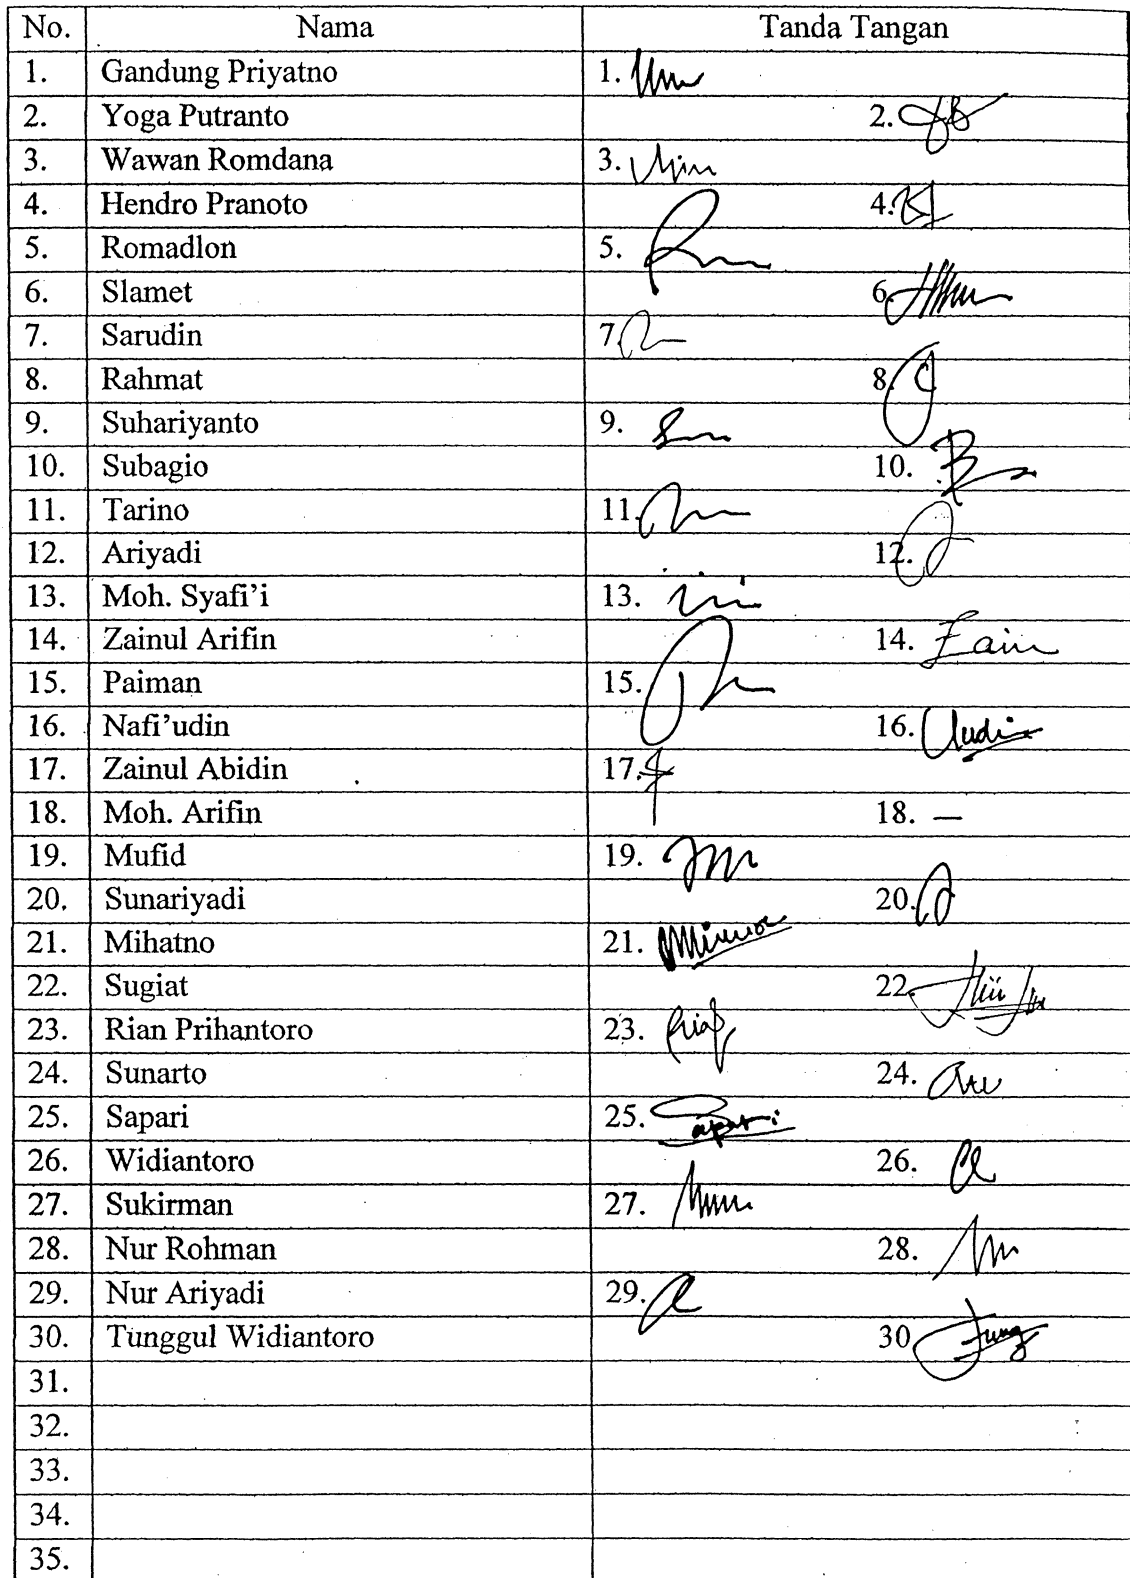 No. Nama Tanda Tangan
1. Gandung Priyatno 1.
2. Yoga Putranto 2.
3. Wawan Romdana 3.
4. Hendro Pranoto 4.
5. Romadlon 5.
6. Slamet 6.
7. Sarudin 7.
8. Rahmat 8.
9. Suhariyanto 9.
10. Subagio 10.
11. Tarino 11.
12. Ariyadi 12.
13. Moh. Syafi'i 13.
14. Zainul Arifin 14. Zain
15. Paiman 15.
16. Nafi'udin 16.
17. Zainul Abidin 17.
18. Moh. Arifin 18. —
19. Mufid 19.
20. Sunariyadi 20.
21. Mihatno 21.
22. Sugiat 22.
23. Rian Prihantoro 23.
24. Sunarto 24.
25. Sapari 25. Sapari
26. Widiantoro 26.
27. Sukirman 27.
28. Nur Rohman 28.
29. Nur Ariyadi 29.
30. Tunggul Widiantoro 30. Tung
31.
32.
33.
34.
35.